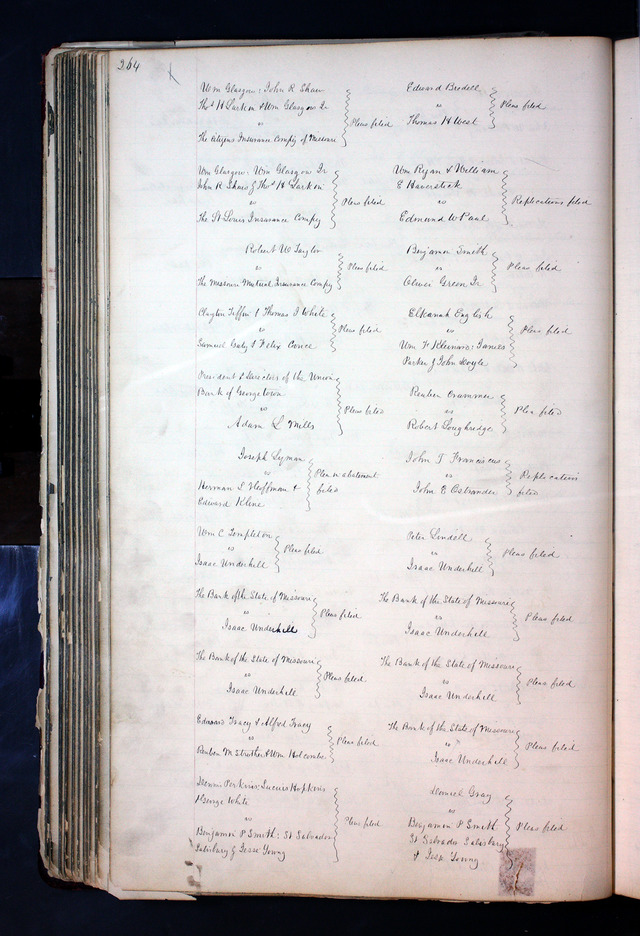 264
Wm Glasgow: John R Shaw
Thos H Larkin & Wm Glasgow Jr
vs
The Citizens Insurance Compy of Missouri
Pleas filed
Edward Bredell
vs
Thomas H West
Pleas filed
Wm Glasgow: Wm Glasgow Jr
John R Shaw & Thos H Larkin
vs
The St Louis Insurance Compy
Pleas filed
Wm Ryan & William
E Haverstick
vs
Edmund W Paul
Replications filed
Robert W Taylor
vs
The Missouri Mutual Insurance Compy
Pleas filed
Benjamin Smith
vs
Oliver Green Jr
Pleas filed
Clayton Tiffin & Thomas J White
vs
Samuel Gaty & Felix Coonce
Pleas filed
Elkanah English
vs
Wm F : James
Parker & John Doyle
Pleas filed
President & Directors of the Union
Bank of Georgetown
vs
Adam L Mills
Pleas filed
Reuben
vs
Robert Loughridge
Plea filed
Joseph Lyman
vs
Herman L Hoffman &
Edward Kline
Plea in abatement
filed
John T Franciscus
vs
John E Ostrander
Replication
filed
Wm C Templeton
vs
Isaac Underhill
Pleas filed
Peter Lindell
vs
Isaac Underhill
Pleas filed
The Bank of the State of Missouri
vs
Isaac Underhill
Pleas filed
The Bank of the State of Missouri
vs
Isaac Underhill
Pleas filed
The Bank of the State of Missouri
vs
Isaac Underhill
Pleas filed
The Bank of the State of Missouri
vs
Isaac Underhill
Pleas filed
Edward Tracy & Alfred Tracy
vs
Reuben M Strother & Wm Holcombe
Pleas filed
The Bank of the State of Missouri
vs
Isaac Underhill
Pleas filed
Dennis Perkins: Lucius Hopkins
& George White
vs
Benjamin P Smith: St Salvador
Salisbury & Jesse Young
Pleas filed
Daniel Gray
vs
Benjamin P Smith
St Salvador Salisbury
& Jesse Young
Pleas filed